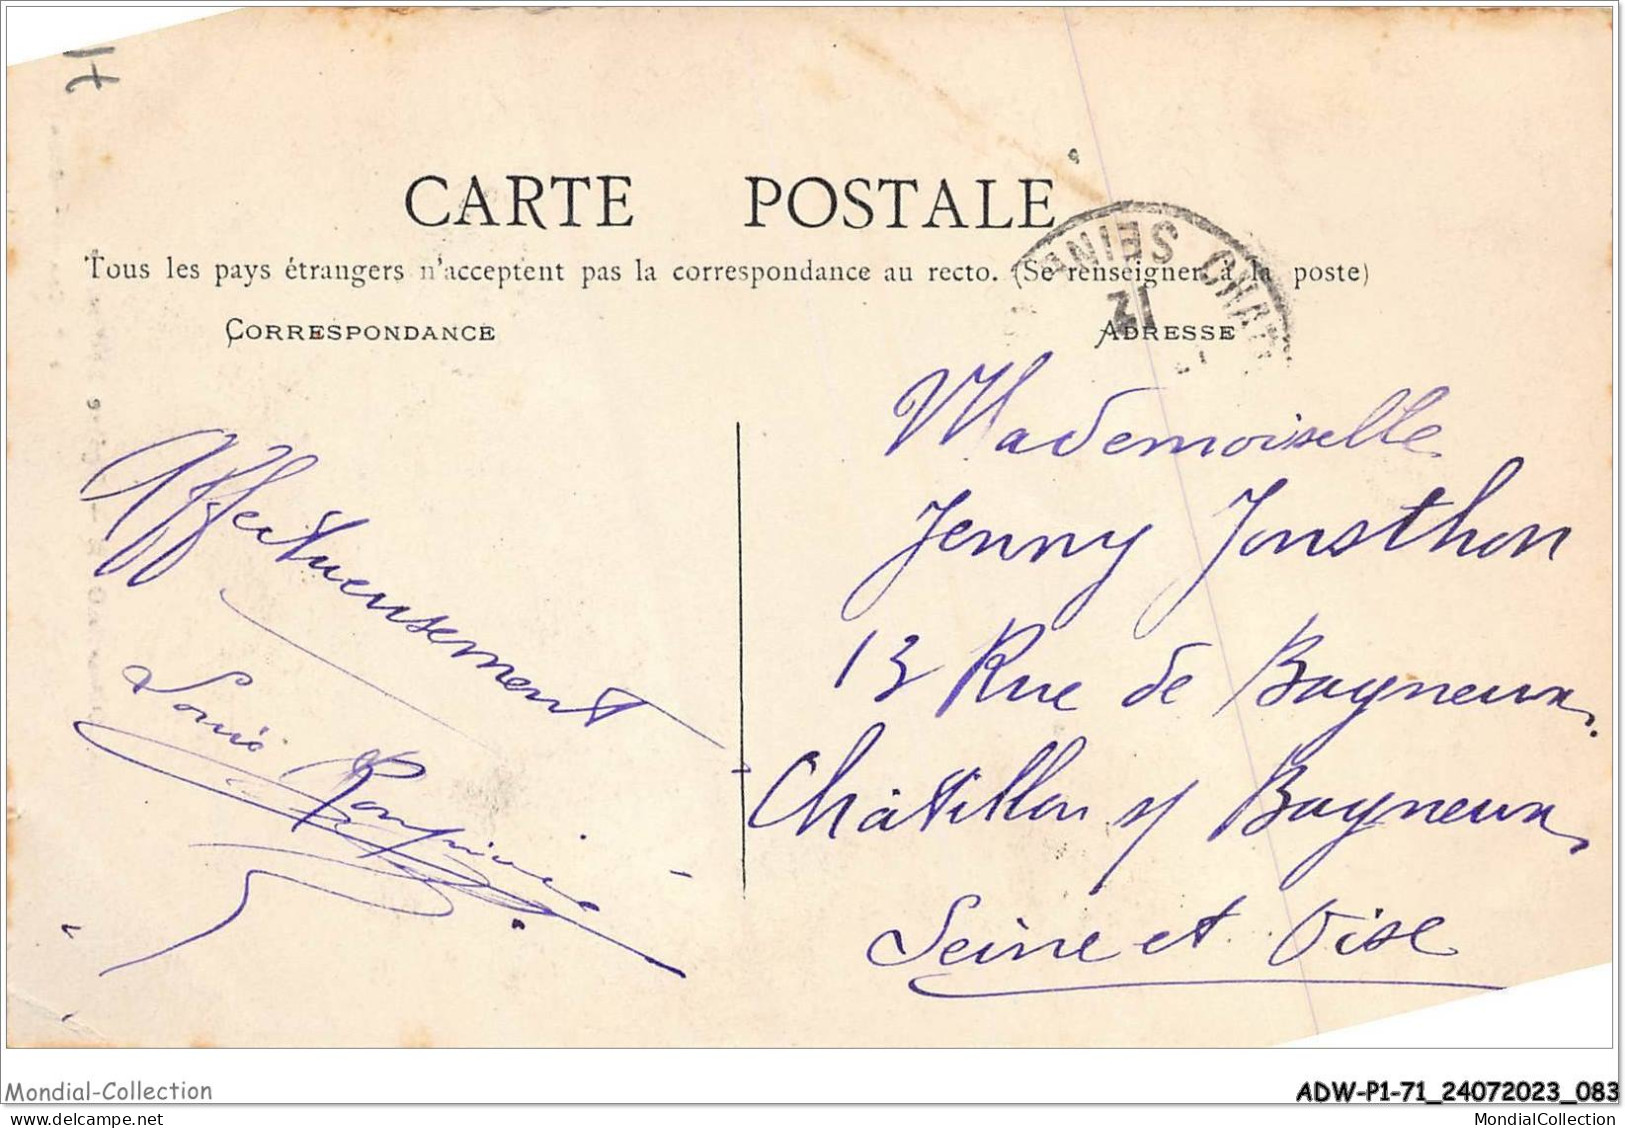 CARTE POSTALE
Tous les pays étrangers n'acceptent pas la correspondance au recto. (Se renseigner à la poste)
CORRESPONDANCE
ADRESSE
SEINE
12
Affectueusement
Louis
Mademoiselle
Jenny Jonsthon
13 Rue de Bagneux
Châtillon s/ Bagneux
Seine et Oise
Mondial-Collection
ADW-P1-71_24072023_083
MondialCollection